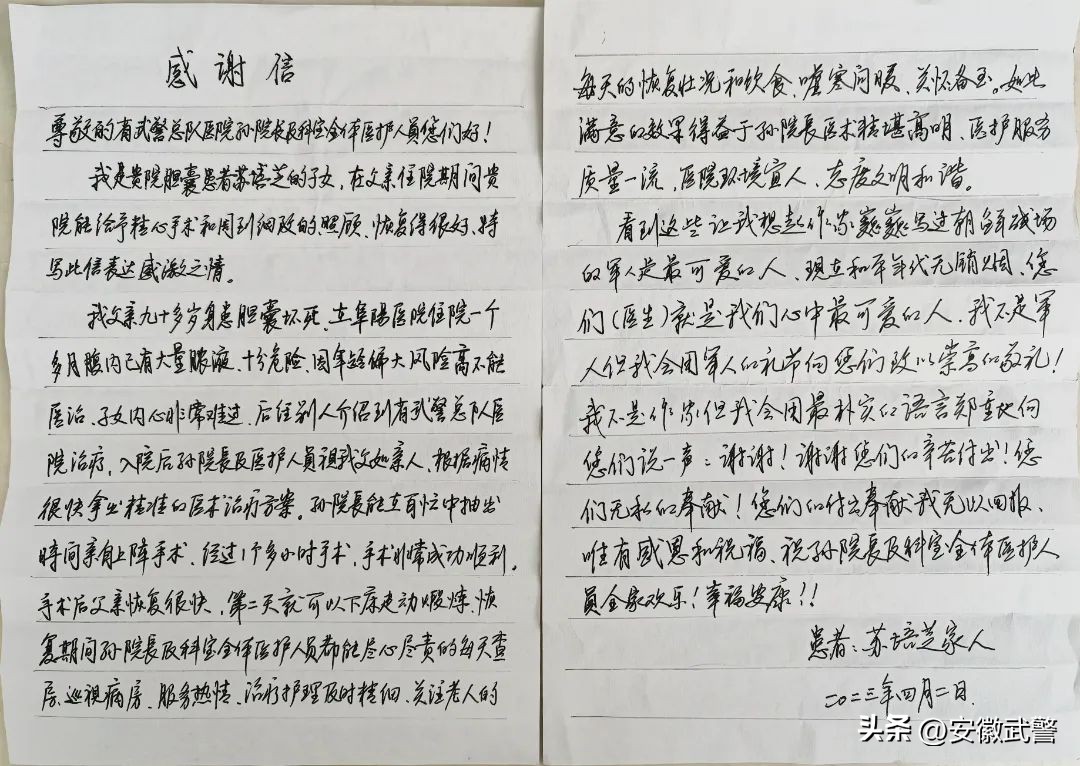 感谢信
尊敬的省武警总队医院孙院长及科室全体医护人员您们好！
我是贵院胆囊患者苏培芝的子女，在父亲住院期间贵
院能给予精心手术和周到细致的照顾、恢复得很好、特
写此信表达感激之情。
我父亲九十多岁身患胆囊坏死、在阜阳医院住院一个
多月腹内已有大量脓液、十分危险、因年龄偏大风险高不能
医治、子女内心非常难过、后经别人介绍到省武警总队医
院治疗，入院后孙院长及医护人员视我父如亲人、根据病情
很快拿出精准的医术治疗方案。孙院长能在百忙中抽出
时间亲自上阵手术、经过1个多小时手术，手术非常成功顺利。
手术后父亲恢复很快，第二天就可以下床走动煅炼、恢
复期间孙院长及科室全体医护人员都能尽心尽责的每天查
房、巡视病房、服务热情、治疗护理及时精细、关注老人的
每天的恢复状况和饮食、嘘寒问暖、关怀备至。如此
满意的效果得益于孙院长医术精堪高明、医护服务
质量一流、医院环境宜人、态度文明和谐。
看到这些让我想起作家巍巍写过朝鲜战场
的军人是最可爱的人、现在和平年代无硝烟、您
们（医生）就是我们心中最可爱的人、我不是军
人但我会用军人的礼节向您们致以崇高的敬礼！
我不是作家但我会用最朴实的语言郑重地向
您们说一声：谢谢！谢谢您们的辛苦付出！您
们无私的奉献！您们的付出奉献我无以回报、
唯有感恩和祝福、祝孙院长及科室全体医护人
员全家欢乐！幸福安康！！
患者：苏培芝家人
二〇二三年四月二日
头条 @安徽武警